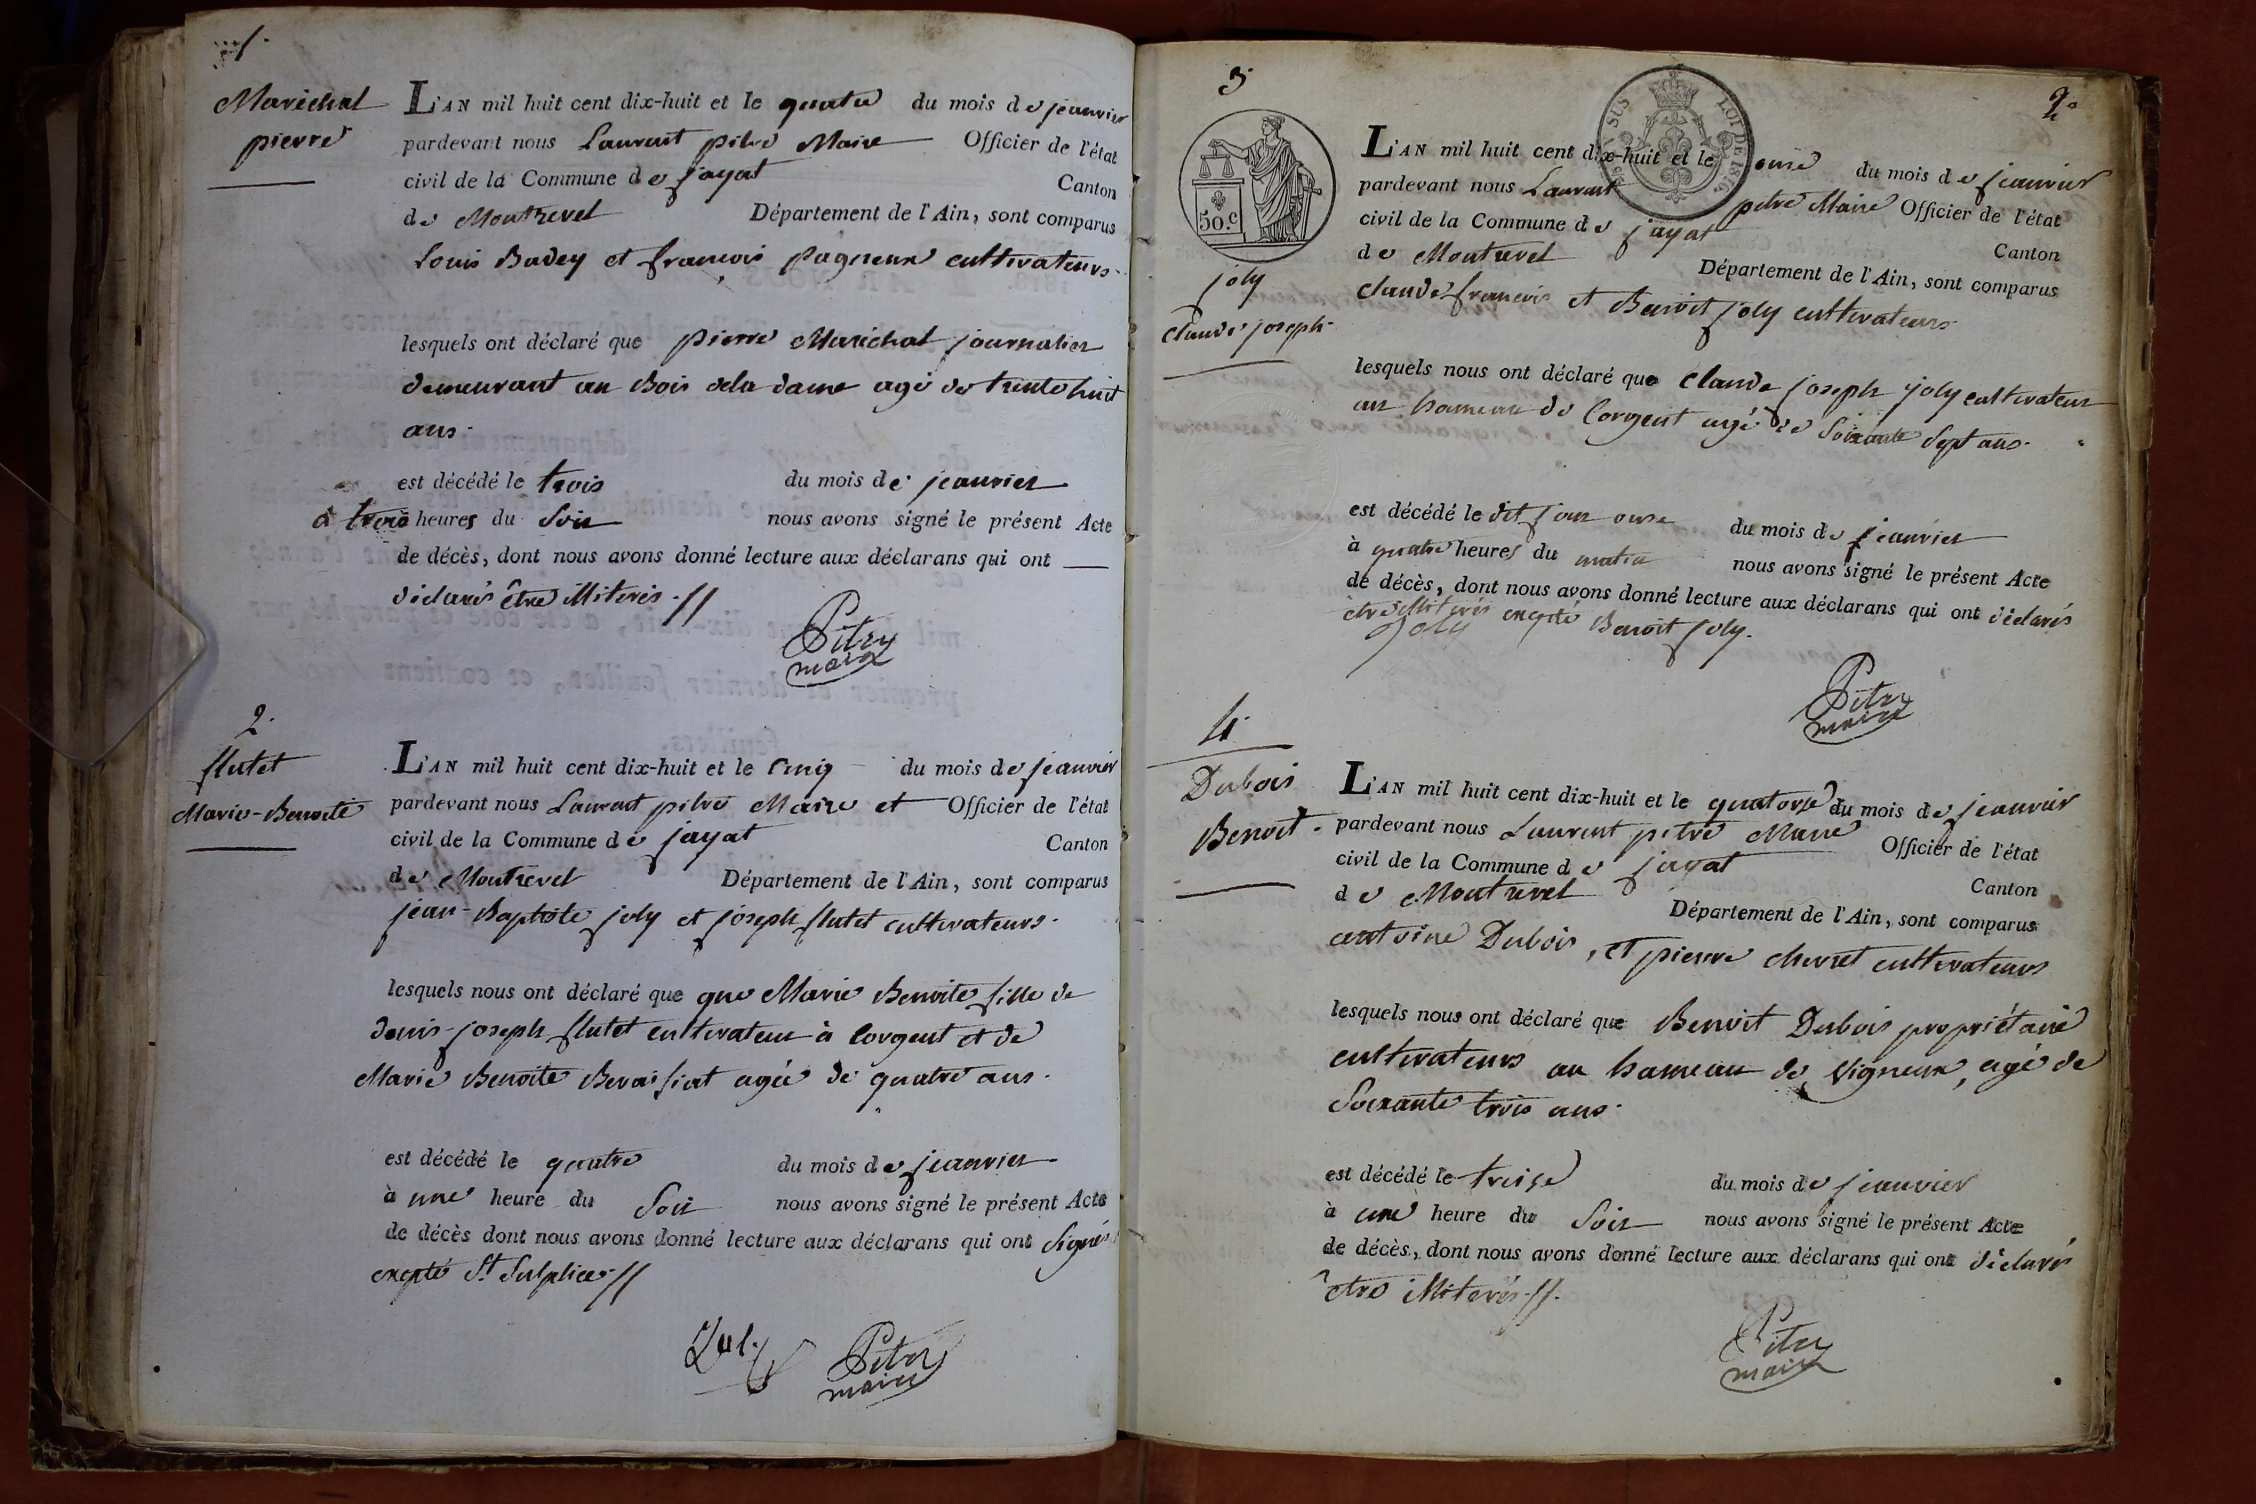 1.
Maréchal
pierre
L'AN mil huit cent dix-huit et le quatre du mois de janvier
pardevant nous Laurent pitre Maire Officier de l'état
civil de la Commune de jayat Canton
de Montrevel Département de l'Ain, sont comparus
Louis Badey et françois pagneux cultivateurs.
lesquels ont déclaré que pierre Maréchal journalier
demeurant au Bois dela dame agé de trente huit
ans.
est décédé le trois du mois de janvier
à trois heures du Soir nous avons signé le présent Acte
de décès, dont nous avons donné lecture aux déclarans qui ont
déclarés être illiterés.//
Pitre
maire
2.
flutet
Marie-Benoite
L'AN mil huit cent dix-huit et le Cinq du mois de janvier
pardevant nous Laurent pitre Maire et Officier de l'état
civil de la Commune de jayat Canton
de Montrevel Département de l'Ain, sont comparus
jean-Baptiste joly et joseph flutet cultivateurs.
lesquels nous ont déclaré que que Marie Benoite fille de
denis-joseph flutet cultivateur à Corgent et de
Marie Benoite agée de quatre ans.
est décédé le quatre du mois de janvier
à une heure du Soir nous avons signé le présent Acte
de décès dont nous avons donné lecture aux déclarans qui ont Signés
excepté St Sulplice//
Pitre
maire
3.
2.
50.c
LOI DE 1816.
joly
claude joseph
L'AN mil huit cent dix-huit et le onze du mois de janvier
pardevant nous Laurent pitre Maire Officier de l'état
civil de la Commune de jayat Canton
de Montrevel Département de l'Ain, sont comparus
claude françois et Benoit joly cultivateurs
lesquels nous ont déclaré que Claude joseph joly cultivateur
au hameau de Corgent agé de Soixante Sept ans.
est décédé le dit jour onze du mois de janvier
à quatre heures du matin nous avons signé le présent Acte
de décès, dont nous avons donné lecture aux déclarans qui ont déclarés
être illiterés excepté Benoit joly.
Joly
Pitre
maire
4.
Dubois
Benoit.
L'AN mil huit cent dix-huit et le quatorze du mois de janvier
pardevant nous Laurent pitre Maire Officier de l'état
civil de la Commune de jayat Canton
de Montrevel Département de l'Ain, sont comparus
antoine Dubois, et pierre chervet cultivateurs
lesquels nous ont déclaré que Benoit Dubois propriétaire
cultivateurs au hameau de Vigneux, agé de
Soixante trois ans.
est décédé le treize du mois de janvier
à une heure du Soir nous avons signé le présent Acte
de décès, dont nous avons donné lecture aux déclarans qui ont déclaré
être illiterés.//.
Pitre
maire